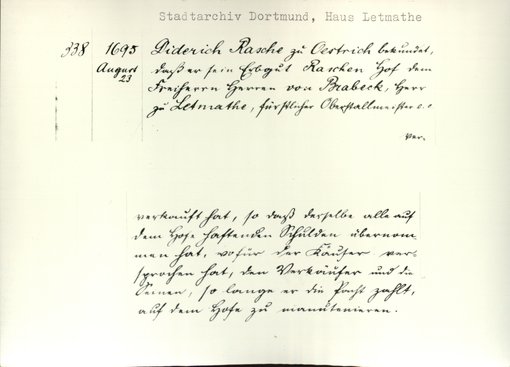 Stadtarchiv Dortmund, Haus Letmathe
338 1695 August 23
Diderich Rasche zu Oestrich bekundet,
daß er sein Erbgut Raschen Hof dem
Freiherrn Herren von Brabeck, Herr
zu Letmathe, fürstlicher Oberstallmeister e.c.
ver-
verkauft hat, so daß derselbe alle auf
dem Hofe haftenden Schulden übernom-
men hat, wofür der Käufer ver-
sprochen hat, den Verkäufer und die
Seinen, so lange er die Pacht zahlt,
auf dem Hofe zu manutenieren.